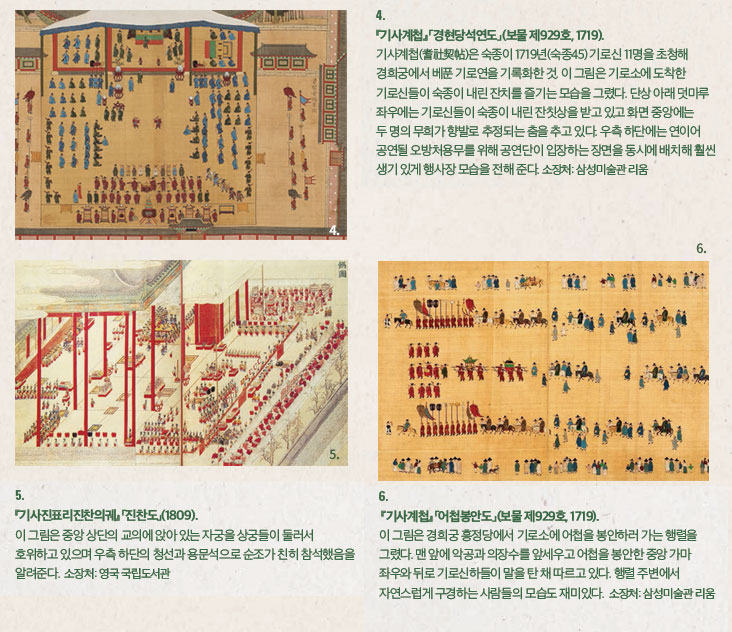 4.
『기사계첩』「경현당석연도」(보물 제929호, 1719).
기사계첩(耆社契帖)은 숙종이 1719년(숙종45) 기로신 11명을 초청해
경희궁에서 베푼 기로연을 기록화한 것. 이 그림은 기로소에 도착한
기로신들이 숙종이 내린 잔치를 즐기는 모습을 그렸다. 단상 아래 덧마루
좌우에는 기로신들이 숙종이 내린 잔칫상을 받고 있고 화면 중앙에는
두 명의 무희가 향발로 추정되는 춤을 추고 있다. 우측 하단에는 연이어
공연될 오방처용무를 위해 공연단이 입장하는 장면을 동시에 배치해 훨씬
생기 있게 행사장 모습을 전해 준다. 소장처: 삼성미술관 리움
4.
6.
5.
5.
『기사진표리진찬의궤』「진찬도」(1809).
이 그림은 중앙 상단의 교의에 앉아 있는 자궁을 상궁들이 둘러서
호위하고 있으며 우측 하단의 청선과 용문석으로 순조가 친히 참석했음을
알려준다. 소장처: 영국 국립도서관
6.
『기사계첩』「어첩봉안도」(보물 제929호, 1719).
이 그림은 경희궁 흥정당에서 기로소에 어첩을 봉안하러 가는 행렬을
그렸다. 맨 앞에 악공과 의장수를 앞세우고 어첩을 봉안한 중앙 가마
좌우와 뒤로 기로신하들이 말을 탄 채 따르고 있다. 행렬 주변에서
자연스럽게 구경하는 사람들의 모습도 재미있다. 소장처: 삼성미술관 리움